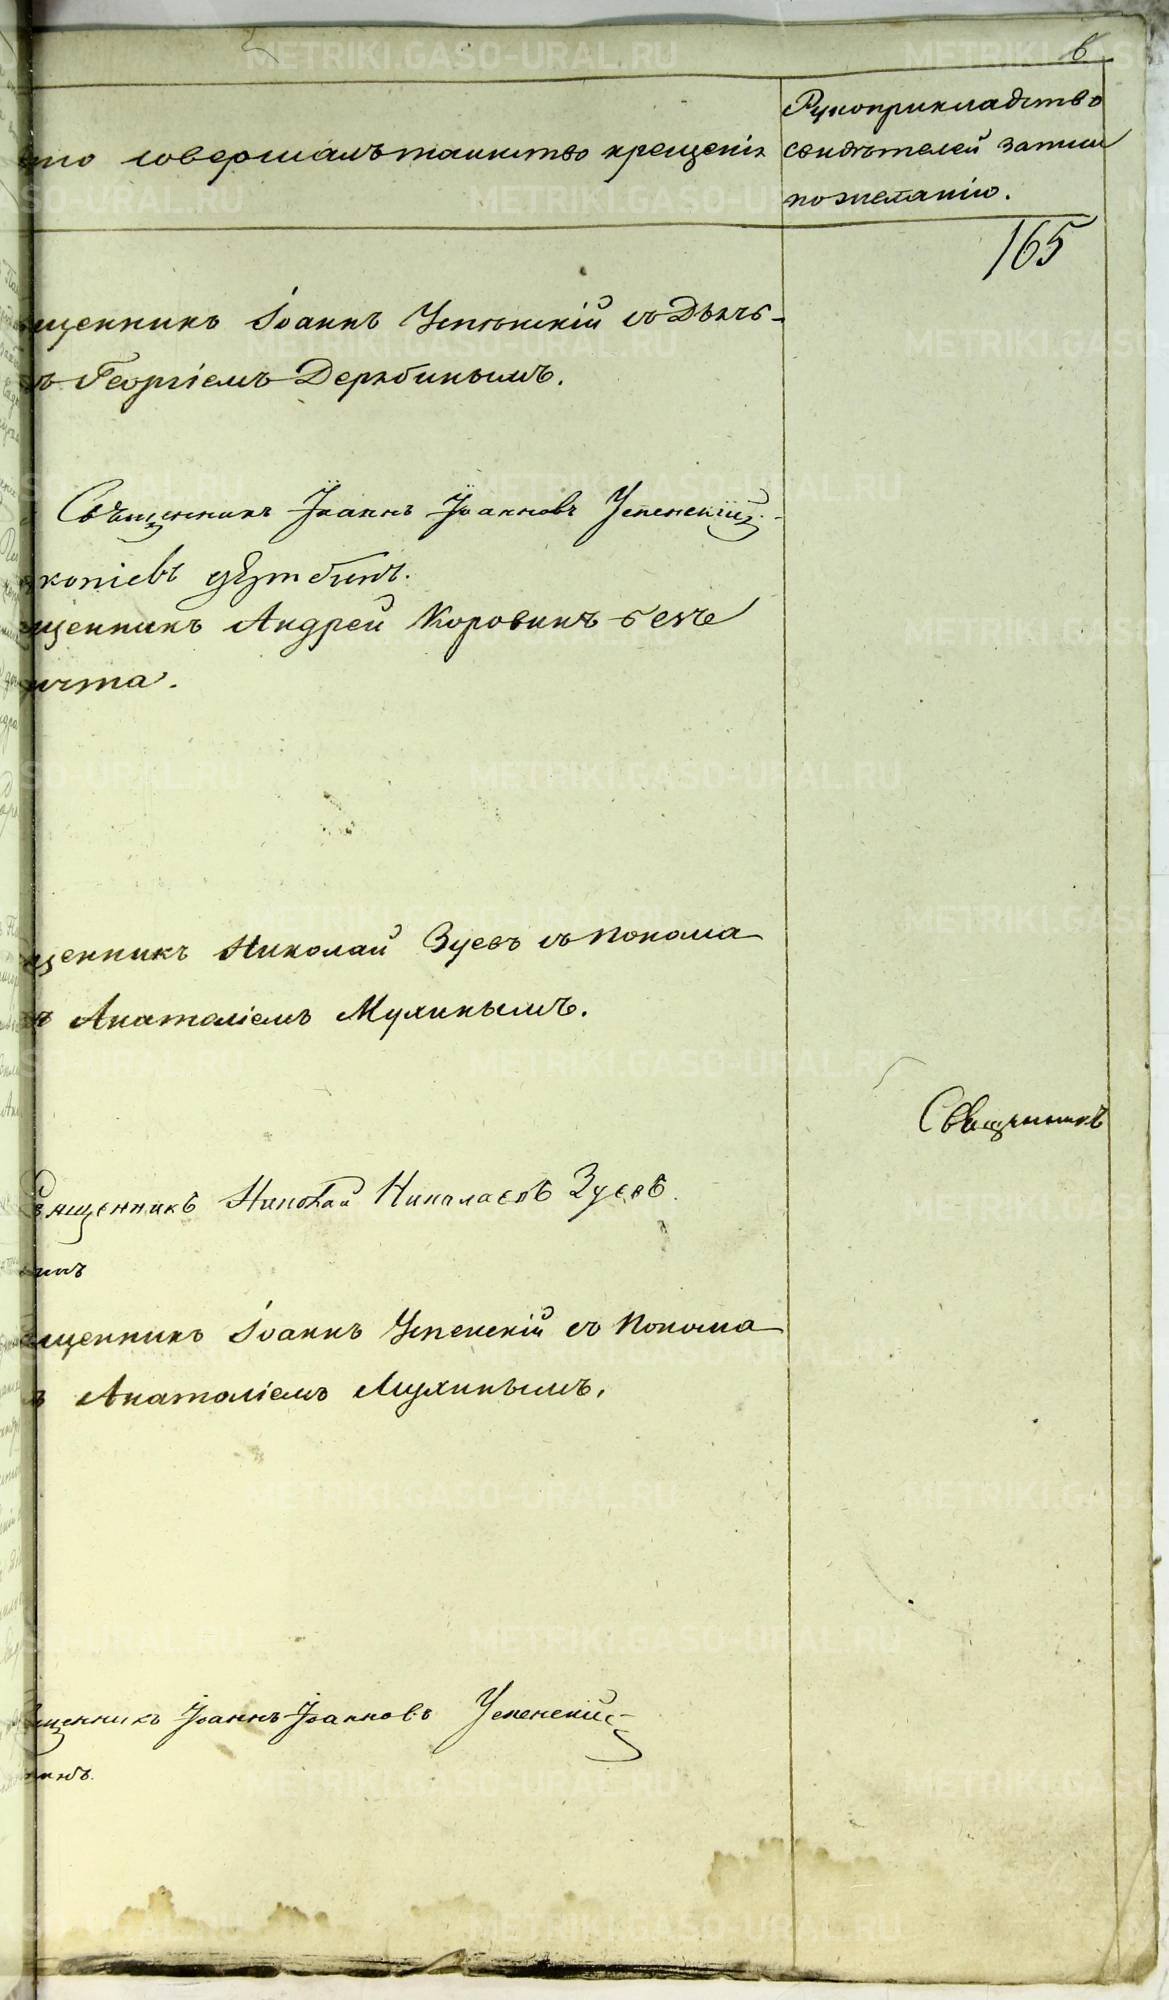 6
кто совершалъ таинство крещенія
Рукоприкладство
свидѣтелей записи
по желанію.
165
щенникъ Іоаннъ Успенскій съ Дьяч-
Георгіемъ Дерябинымъ.
Священникъ Іоаннъ Іоанновъ Успенскій
щенникъ Андрей Коровинъ безъ
щенникъ Николай Зуевъ съ понома
Анатоліемъ Мухинымъ.
Священникъ
Священникъ Николай Николаевъ Зуевъ.
щенникъ Іоаннъ Успенскій съ Понома
Анатоліемъ Мухинымъ.
щенникъ Іоаннъ Іоанновъ Успенскій
METRIKI.GASO-URAL.RU